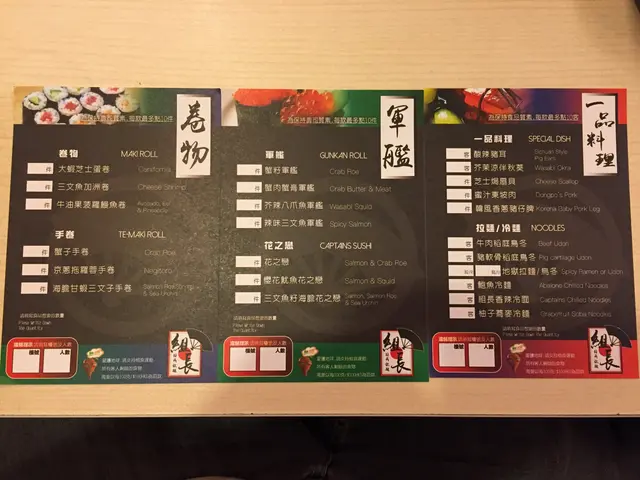 為保持壽司質素,每款最多點10件
卷物
卷物 MAKI ROLL
件 大蝦芝士蛋卷 California
件 三文魚加洲卷 Cheese Shrimp
件 牛油果菠蘿鰻魚卷 Avocado, Eel & Pineapple
手卷 TE-MAKI ROLL
件 蟹子手卷 Crab Roe
件 京蔥拖羅蓉手卷 Negitoro
件 海膽甘蝦三文子手卷 Salmon Roe, Shrimp & Sea Urchin
請輕鬆寫你想要的數量
檯號 人數
組長
為保持壽司質素,每款最多點10件
軍艦
軍艦 GUNKAN ROLL
件 蟹籽軍艦 Crab Roe
件 蟹肉蟹膏軍艦 Crab Butter & Meat
件 芥辣八爪魚軍艦 Wasabi Squid
件 辣味三文魚軍艦 Spicy Salmon
花之戀 CAPTAINS SUSHI
件 花之戀 Salmon & Crab Roe
件 櫻花魷魚花之戀 Salmon & Squid
件 三文魚籽海膽花之戀 Salmon, Salmon Roe & Sea Urchin
檯號 人數
組長
為保持壽司質素,每款最多點10客
一品料理
一品料理 SPECIAL DISH
客 酸辣豬耳 Sichuan Style Pig Ears
客 芥茉涼伴秋葵 Wasabi Okra
件 芝士焗扇貝 Cheese Scallop
件 蜜汁東坡肉 Dongpo's Pork
件 韓風香蔥豬仔髀 Korena Baby Pork Leg
拉麵/冷麵 NOODLES
客 牛肉稻庭烏冬 Beef Udon
客 豬軟骨稻庭烏冬 Pig cartilage Udon
地獄拉麵/烏冬 Spicy Ramen or Udon
客 鮑魚冷麵 Abalone Chilled Noodles
客 組長香辣冷面 Captains Chilled Noodles
客 柚子蕎麥冷麵 Grapefruit Soba Noodles
檯號 人數
組長